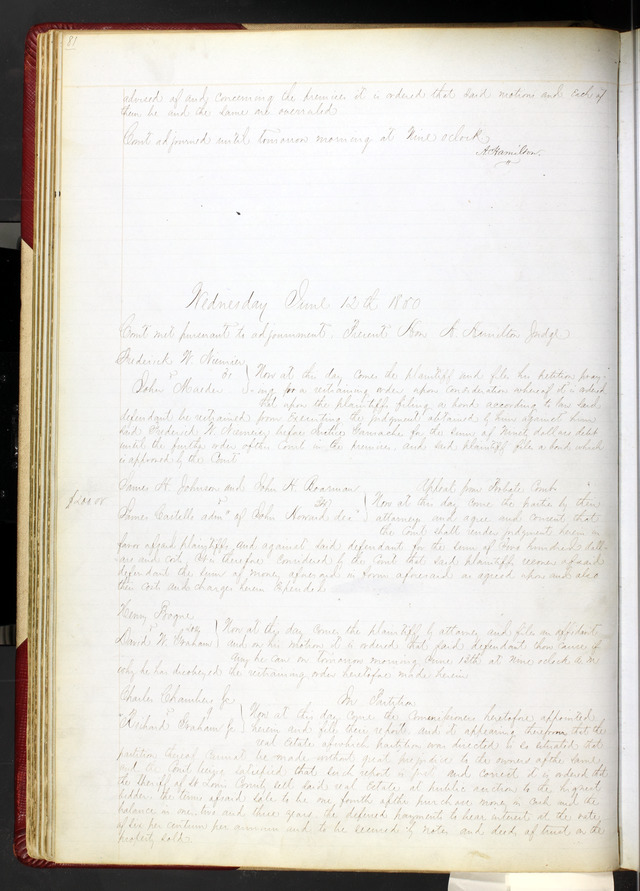 81
advised of and concerning the premises it is ordered that said motions and each of
them be and the same are overruled
Court adjourned until tomorrow morning at Nine oclock
A Hamilton
Wednesday June 12th 1850
Court met pursuant to adjournment. Present Hon A. Hamilton Judge
Frederick W.
John Maeder
Now at this day comes the plaintiff and files his petition pray-
ing for a restraining order upon consideration whereof it is ordered
that upon the plaintiffs filing a bond according to law said
defendant be restrained from executing the judgment obtained by him against him
said Frederick W. before Gamache for the sum of Ninety dollars debt
until the further order of the Court in the premises and said plaintiff files a bond which
is approved by the Court
James H. Johnson and John H. Boarman Appeal from Probate Court
James Castello admr of John Howard decd
Now at this day come the parties by their
attorneys and agree and consent that
the Court shall render judgment herein in
favor of said plaintiffs and against said defendant for the sum of Two hundred doll-
ars and costs It is therefore considered by the Court that said plaintiffs recover of said
defendant the sum of money aforesaid in form aforesaid as agreed upon and also
their costs and charges herein expended
Henry Prague
David W. Graham
Now at this day comes the plaintiff by attorney and files an affidavit
and on his motion it is ordered that said defendant show cause if
any he can on tomorrow morning June 13th at Nine oclock A M
why he has disobeyed the restraining order heretofore made herein
Charles Chambers Jr In Partition
Richard Graham Jr
Now at this day come the Commissioners heretofore appointed
herein and file their report and it appearing therefrom that the
real estate of which partition was directed is so situated that
partition thereof cannot be made without great prejudice to the owners of the same
and the Court being satisfied that such report is just and correct it is ordered that
the Sheriff of St Louis County sell said real estate at public auction to the highest
bidder the terms of said sale to be one fourth of the purchase money in Cash and the
balance in one two and three years the deferred payments to bear interest at the rate
of six per centum per annum and to be secured by notes and deed of trust on the
property sold